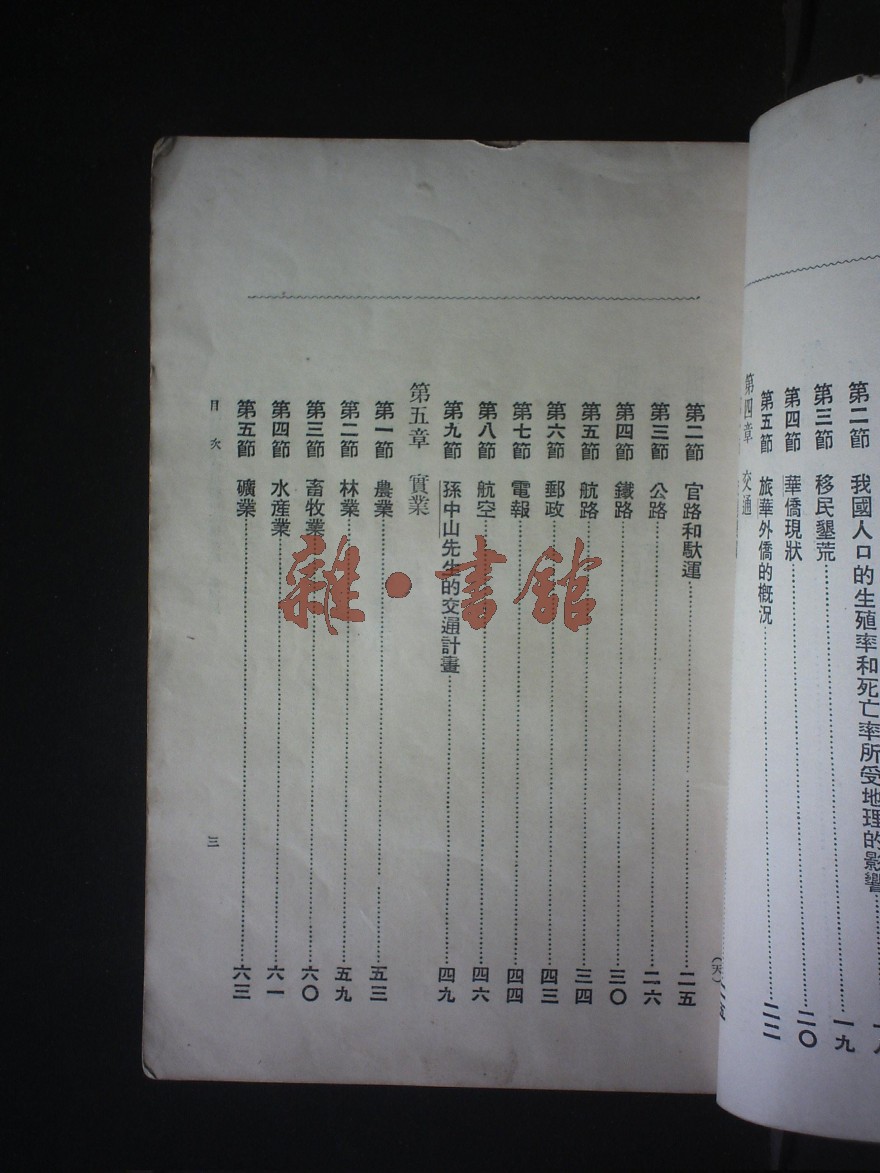 第二節 我國人口的生殖率和死亡率所受地理的影響
第三節 移民墾荒 一九
第四節 華僑現狀 二〇
第五節 旅華外僑的概況 二二
第四章 交通
第二節 官路和馱運 二五
第三節 公路 二六
第四節 鐵路 三〇
第五節 航路 三四
第六節 郵政 四三
第七節 電報 四四
第八節 航空 四六
第九節 孫中山先生的交通計畫 四九
第五章 實業
第一節 農業 五三
第二節 林業 五九
第三節 畜牧業 六〇
第四節 水產業 六一
第五節 礦業 六三
目次 三
雜·書館